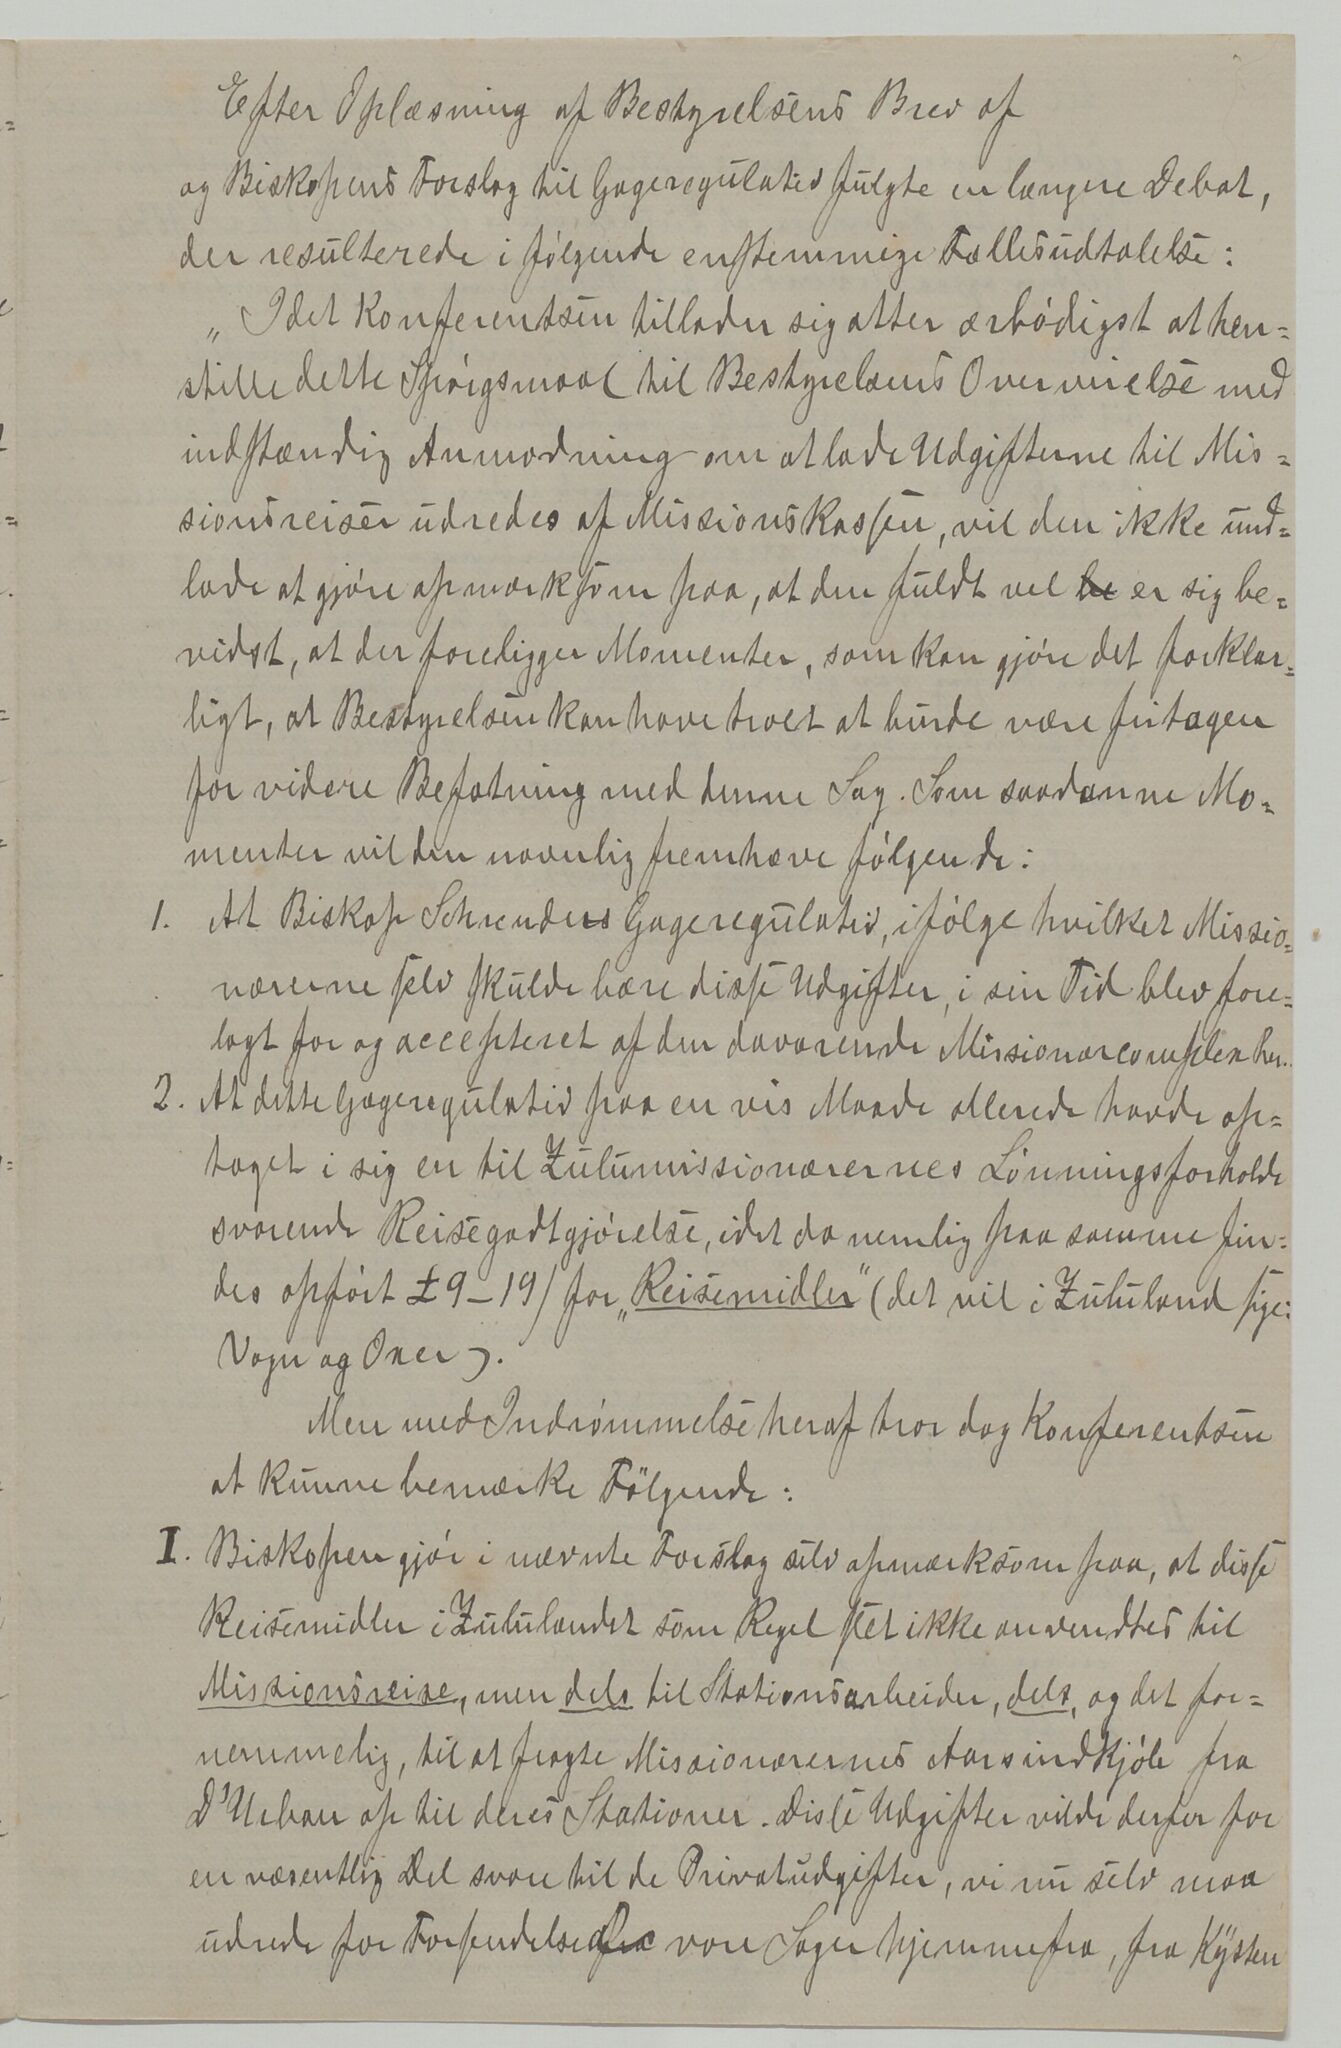 Efter Oplæsning af Bestyrelsens Brev af
og Biskopens Forslag til Gageregulativ fulgte en længere Debat,
der resulterede i følgende enstemmige Fællesudtalelse:
„Idet Konferentsen tillader sig atter ærbødigst at hen=
stille dette Spørgsmaal til Bestyrelsens Overveielse med
indstændig Anmodning om at lade Udgifterne til Mis=
sionsreiser udredes af Missionskassen, vil den ikke und=
lade at gjøre opmærksom paa, at den fuldt vel be er sig be=
vidst, at der foreligger Momenter, som kan gjøre det forklar=
ligt, at Bestyrelsen kan have troet at burde være fritagen
for videre Befatning med denne Sag. Som saadanne Mo=
menter vil den navnlig fremhæve følgende:
1. At Biskop Schreuders Gageregulativ, ifølge hvilket Missio=
nærerne selv skulde bære disse Udgifter, i sin Tid blev fore=
lagt for og accepteret af den daværende Missionærcomplex her.
2. At dette Gageregulativ paa en vis Maade allerede havde op=
taget i sig en til Zulumissionærernes Lønningsforholde
svarende Reisegodtgjørelse, idet da nemlig paa samme fin=
des opført £ 9 – 19/ for „Reisemidler" (det vil i Zululand sige:
Vogn og Oxer).
Men med Indrømmelse heraf tror dog Konferentsen
at kunne bemærke Følgende:
I. Biskopen gjør i nævnte Forslag selv opmærksom paa, at disse
Reisemidler i Zululandet som Regel slet ikke anvendtes til
Missionsreise, men dels til Stationsarbeider, dels, og det for=
nemmelig, til at fragte Missionærernes Aarsindkjøb fra
D'Urban op til deres Stationer. Disse Udgifter vilde derfor for
en væsentlig Del svare til de Privatudgifter, vi nu selv maa
udrede for Forsendelse vore Sager hjemmefra, fra Kysten